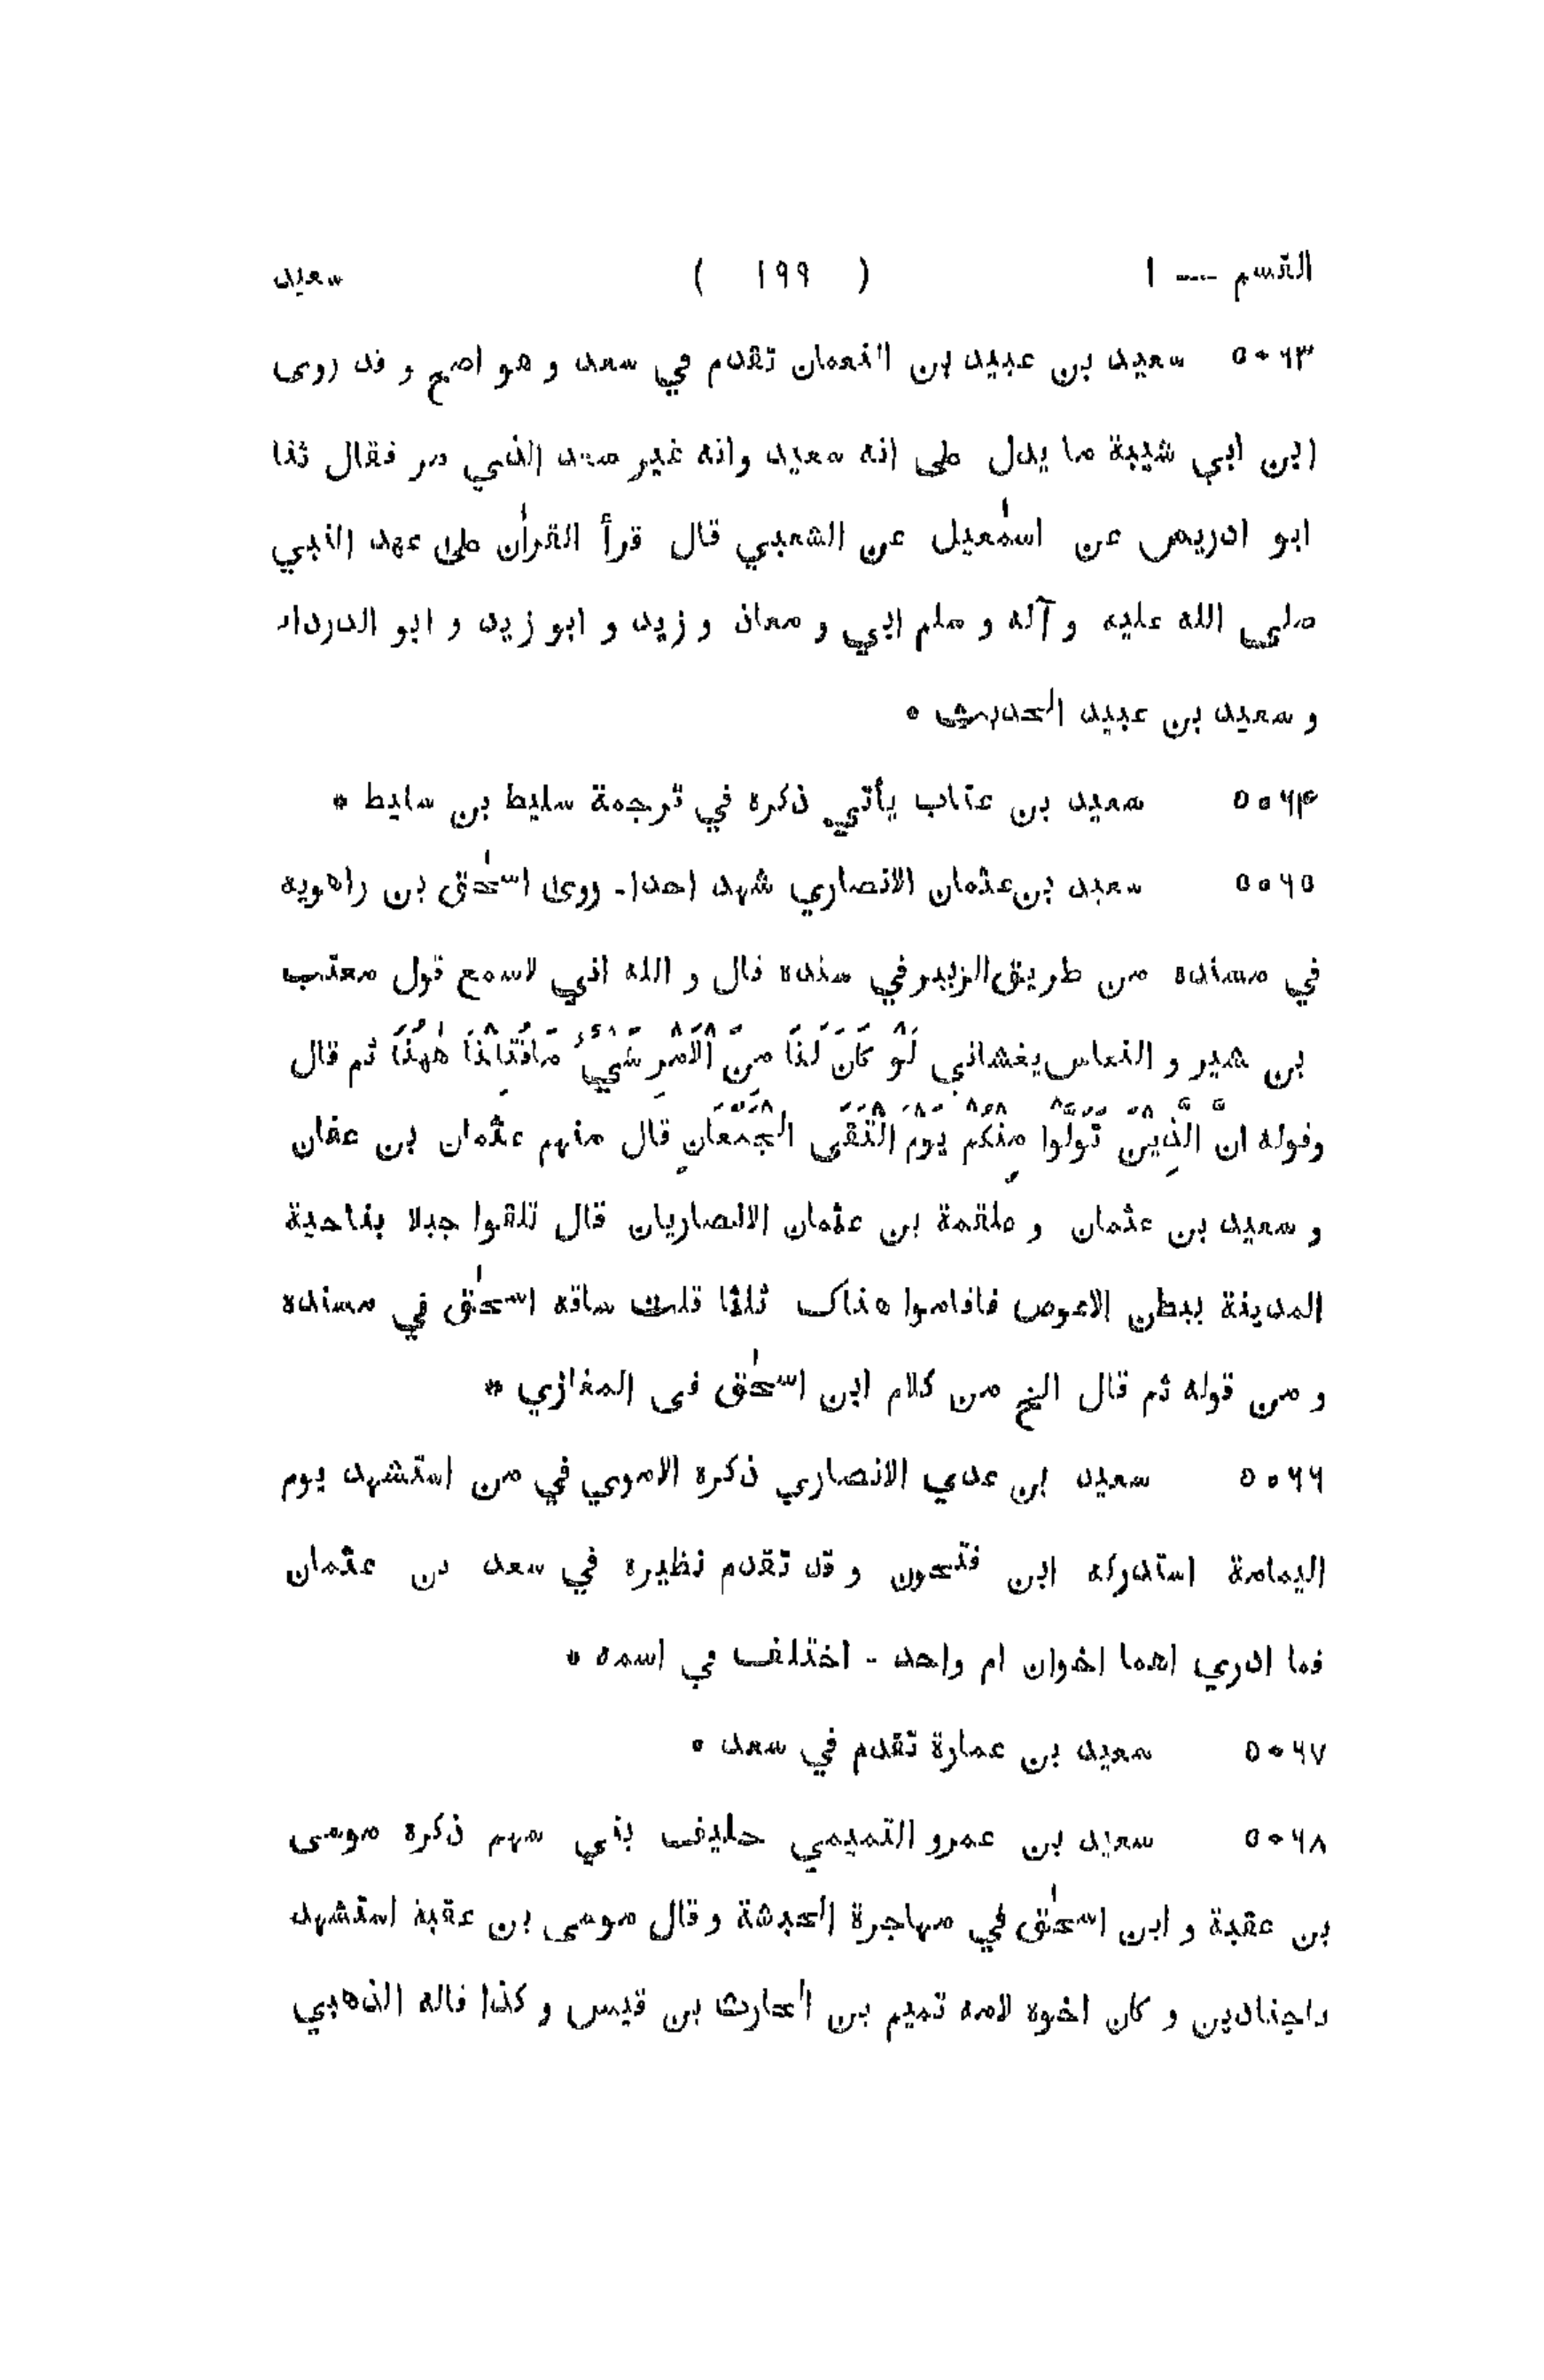 القسم — ١ ( ١٩٩ ) سعيد
٥٠٦٣ سعيد بن عبيد بن النعمان تقدم في سعد و هو اصح و قد روى
ابن ابي شيبة ما يدل على انه سعيد وانه غير سعد الذي مر فقال ثنا
ابو ادريس عن اسمٰعيل عن الشعبي قال قرأ القرأٰن على عهد النبي
صلى الله عليه و آله و سلم ابي و معاذ و زيد و ابو زيد و ابو الدرداء
و سعيد بن عبيد الحديث *
٥٠٦٤ سعيد بن عتاب يأتي ذكره في ترجمة سليط بن سليط *
٥٠٦٥ سعيد بن عثمان الانصاري شهد احدا - روى اسحٰق بن راهويه
في مسنده من طريق الزبير في سنده قال و الله اني لاسمع قول معتب
بن شير و النعاس يغشاني لَوْ كَانَ لَنَا مِنَ الْاَمْرِ شَيْءٌ مَا قُتِلْنَا هٰهُنَا ثم قال
وقوله انَّ الَّذِيْنَ تَوَلَّوْا مِنْكُمْ يَوْمَ الْتَقَى الْجَمْعَانِ قال منهم عثمان بن عفان
و سعيد بن عثمان و علقمة بن عثمان الانصاريان قال تلقوا جبلا بناحية
المدينة ببطن الاعوص فاقاموا هناك ثلثا قلت ساقه اسحٰق في مسنده
و من قوله ثم قال الخ من كلام ابن اسحٰق فى المغازي *
٥٠٦٦ سعيد بن عدي الانصاري ذكره الاموي في من استشهد يوم
اليمامة استدركه ابن فتحون و قد تقدم نظيره في سعد بن عثمان
فما ادري اهما اخوان ام واحد - اختلف في اسمه *
٥٠٦٧ سعيد بن عمارة تقدم في سعد *
٥٠٦٨ سعيد بن عمرو التميمي حليف بني سهم ذكره موسى
بن عقبة و ابن اسحٰق في مهاجرة الحبشة و قال موسى بن عقبة استشهد
باجنادين و كان اخوه لامه تميم بن الحارث بن قيس و كذا قاله الذهبي